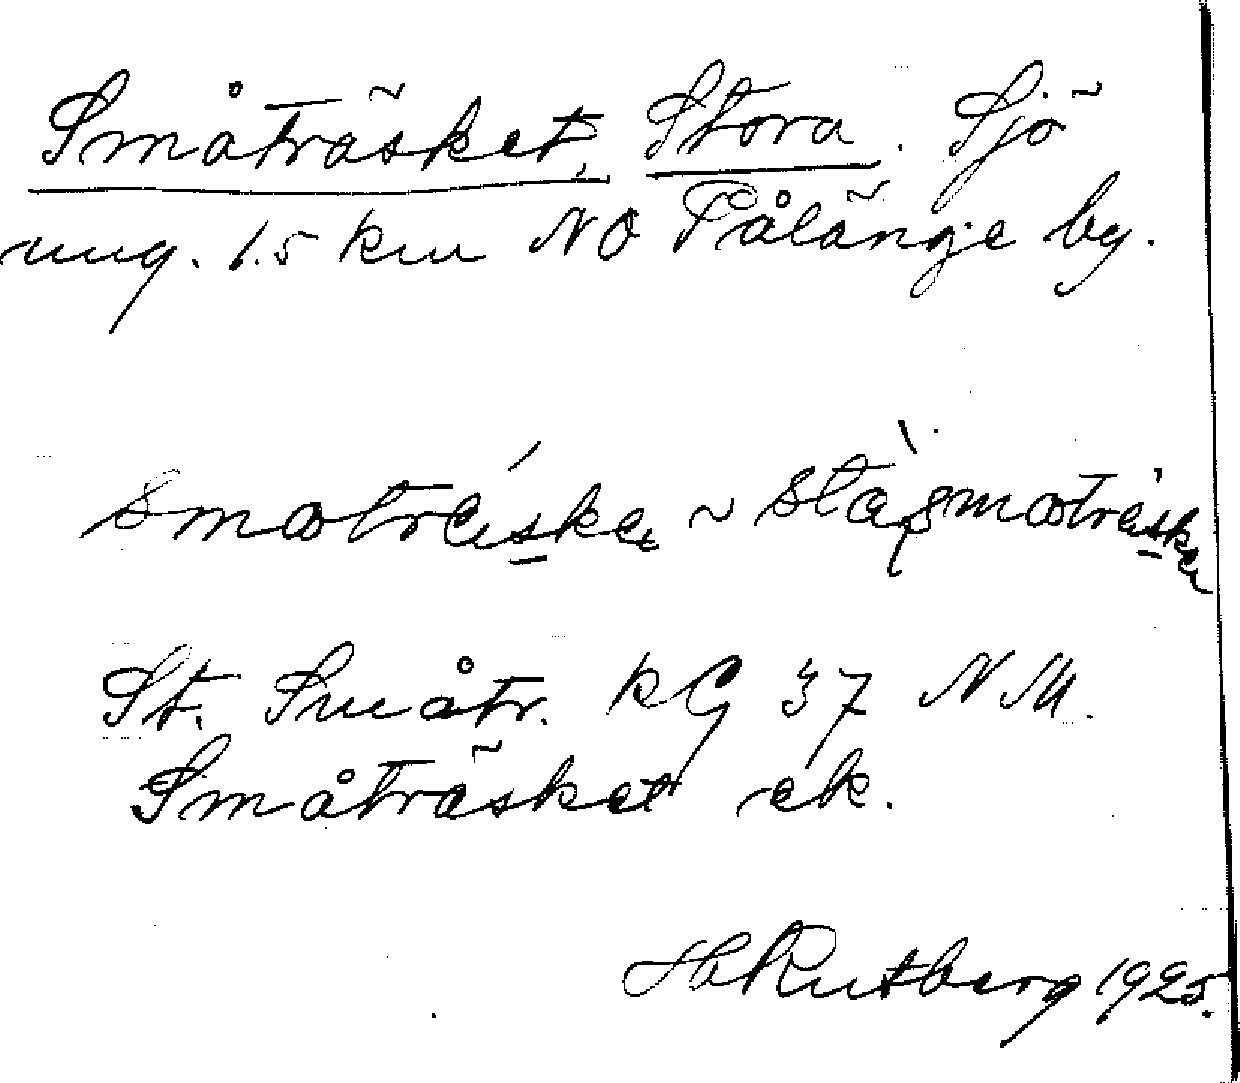 Småträsket, Stora. Sjö
ung. 1.5 km NO Pålänge by.
St. Småtr. kG 37 NM.
Småträsket ek.
H Rutberg 1925.